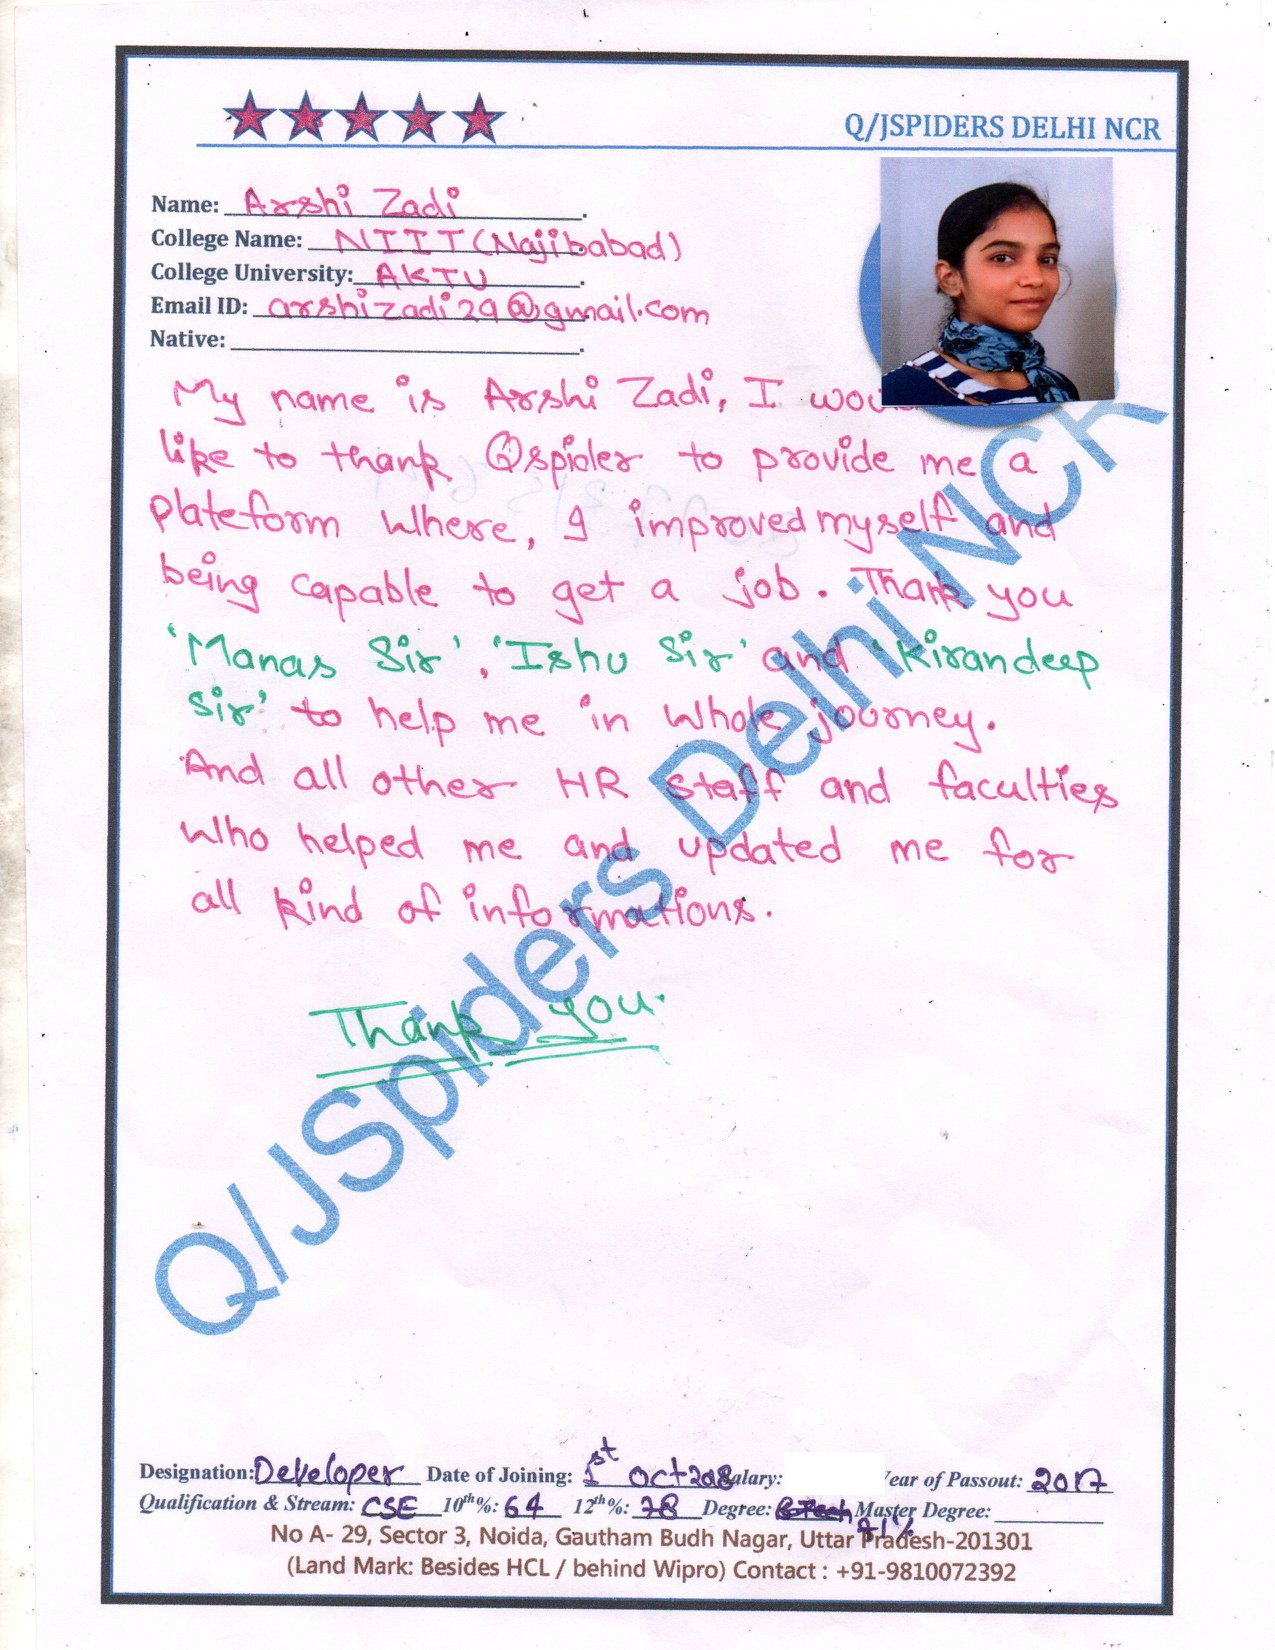 Q/JSPIDERS DELHI NCR
Name: Arshi Zadi
College Name: NIIT (Najibabad)
College University: AKTU
Email ID: arshizadi29@gmail.com
Native:
My name is Arshi Zadi, I wou
like to thank Qspider to provide me a
plateform where, I improved myself and
being capable to get a job. Thank you
'Manas Sir', 'Ishu Sir' and 'Kirandeep
Sir' to help me in whole journey.
And all other HR staff and faculties
who helped me and updated me for
all kind of informations.
Thank you.
Q/JSpiders Delhi NCR
Designation: Developer Date of Joining: 1st Oct 2018 Salary: Year of Passout: 2017
Qualification & Stream: CSE 10th%: 64 12th%: 78 Degree: B-Tech 71% Master Degree:
No A- 29, Sector 3, Noida, Gautham Budh Nagar, Uttar Pradesh-201301
(Land Mark: Besides HCL / behind Wipro) Contact : +91-9810072392